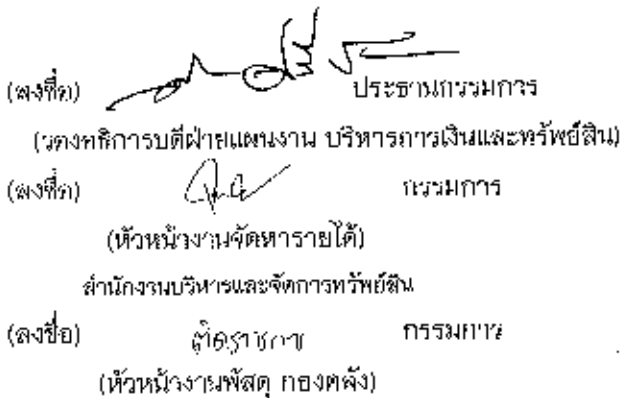 (ลงชื่อ) ประธานกรรมการ
(รองอธิการบดีฝ่ายแผนงาน บริหารการเงินและทรัพย์สิน)
(ลงชื่อ) กรรมการ
(หัวหน้างานจัดหารายได้)
สำนักงานบริหารและจัดการทรัพย์สิน
(ลงชื่อ) ติดราชการ กรรมการ
(หัวหน้างานพัสดุ กองคลัง)